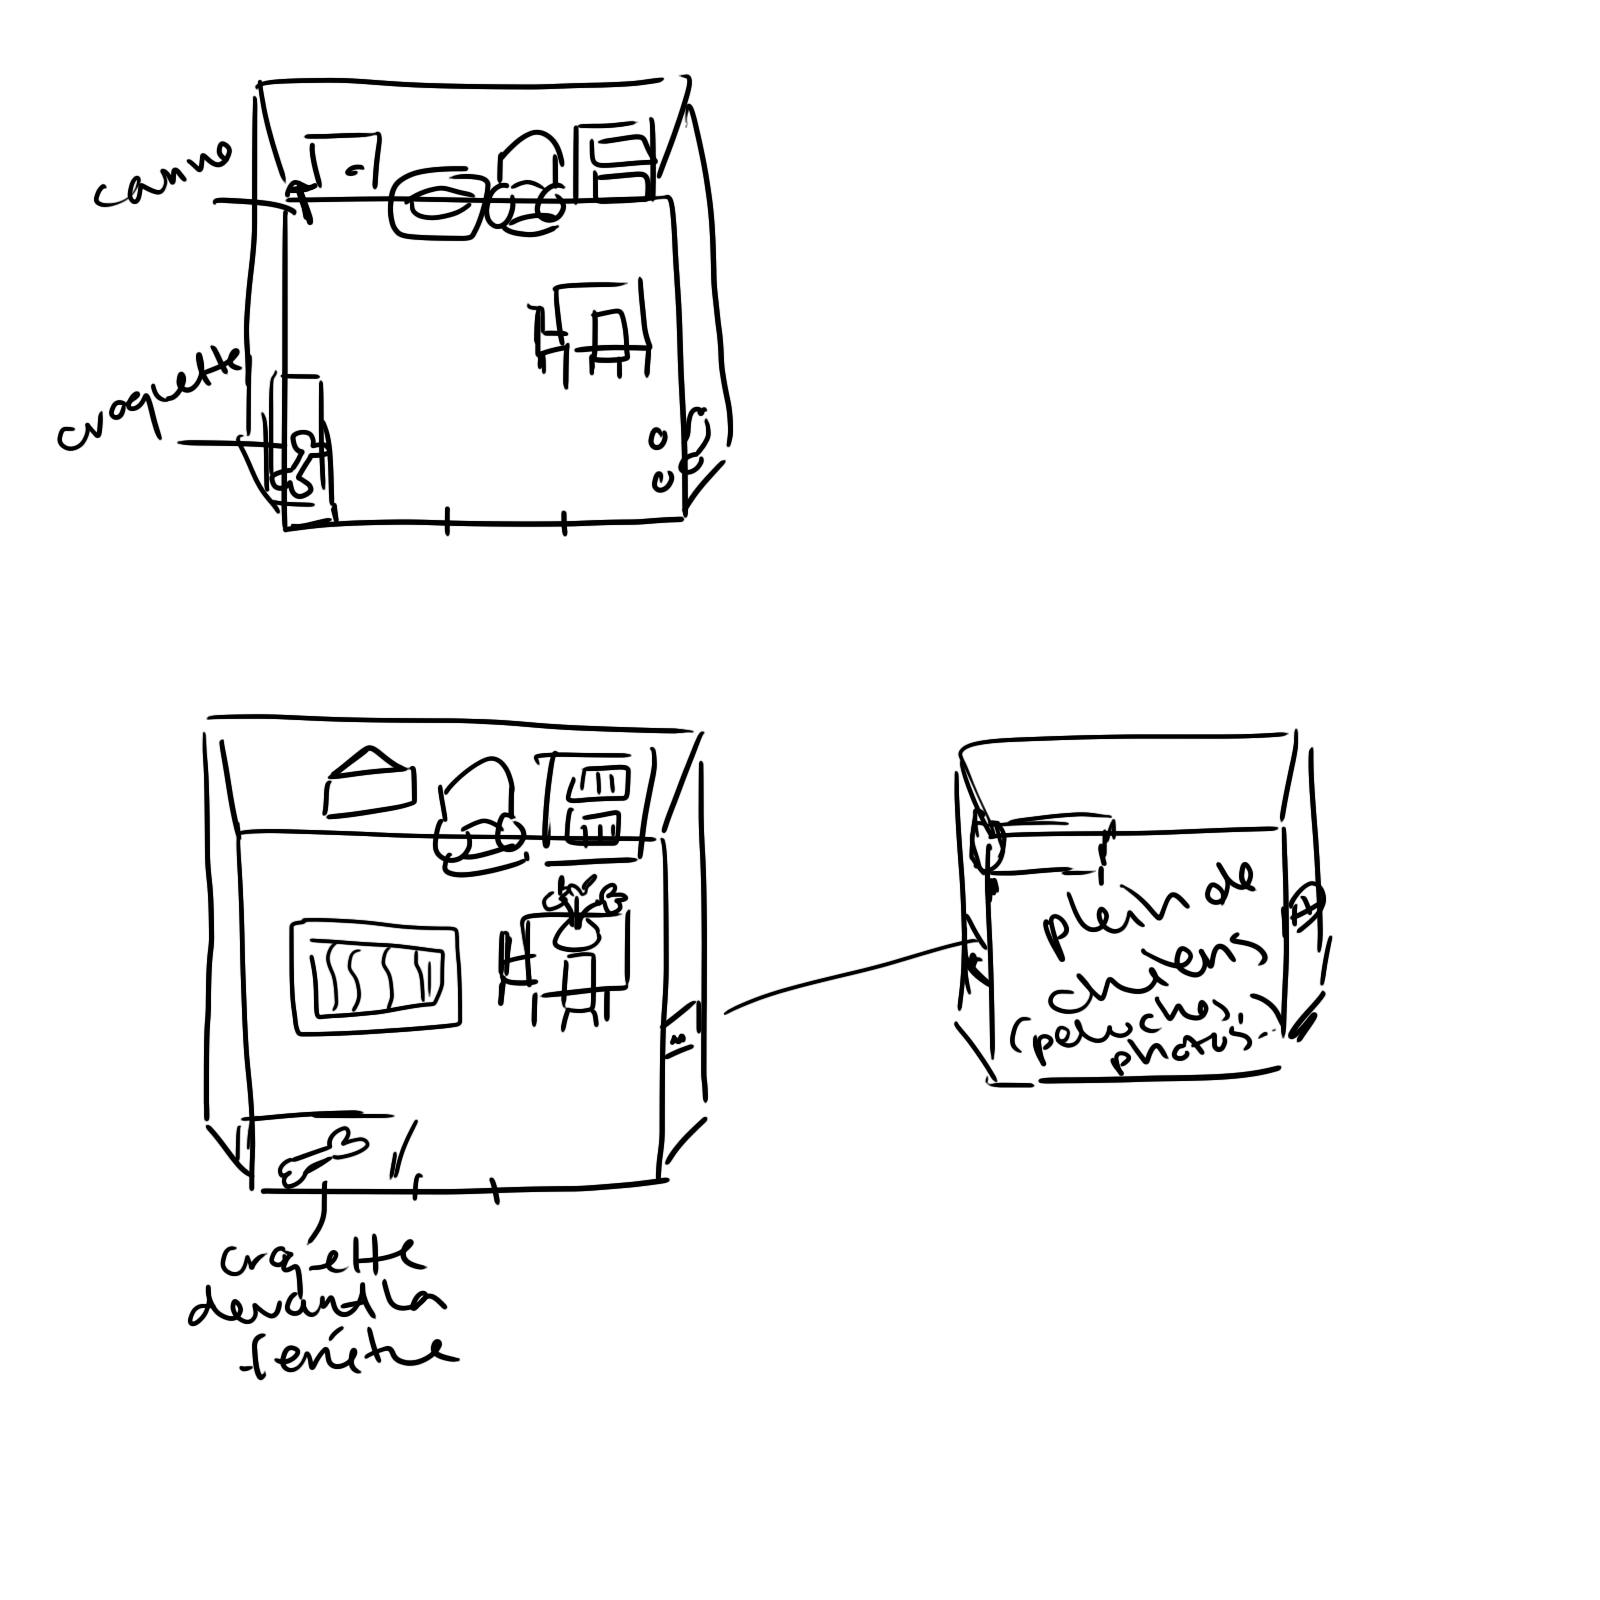 canne
croquette
plein de
chiens
(peluches,
photos...
croquette
devant la
fenêtre